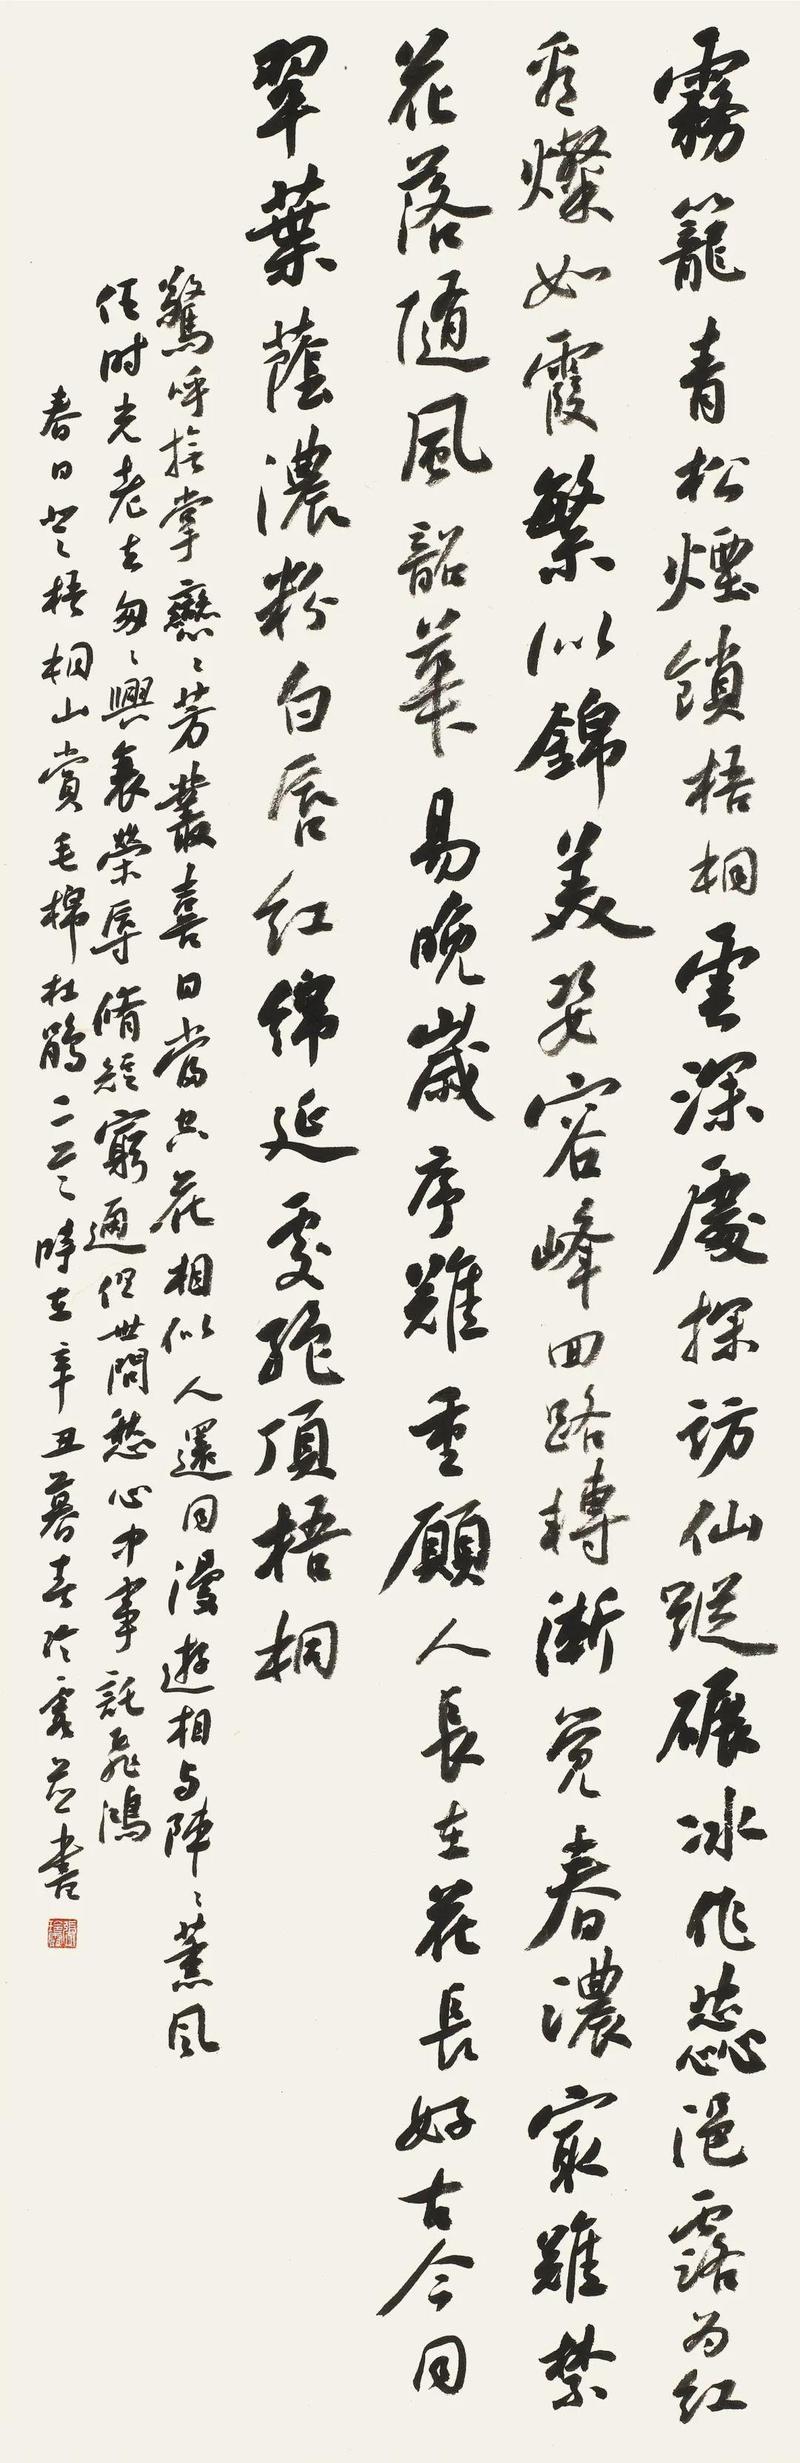 霧籠青松煙鎖梧桐雲深處探訪仙蹤碾冰作蕊浥露為紅
看燦如霞繁似錦美姿容峰回路轉漸覺春濃最難禁
花落隨風韶華易晚歲序難重願人長在花長好古今同
翠葉蔭濃粉白唇紅綿延處絕頂梧桐
驚呼撫掌戀戀芳叢喜日當空花相似人還同漫遊相與陣陣薰風
任時光老去匆匆興衰榮辱脩短窮通但世間愁心中事託飛鴻
春日登梧桐山賞毛棉杜鵑二首時在辛丑暮春於書